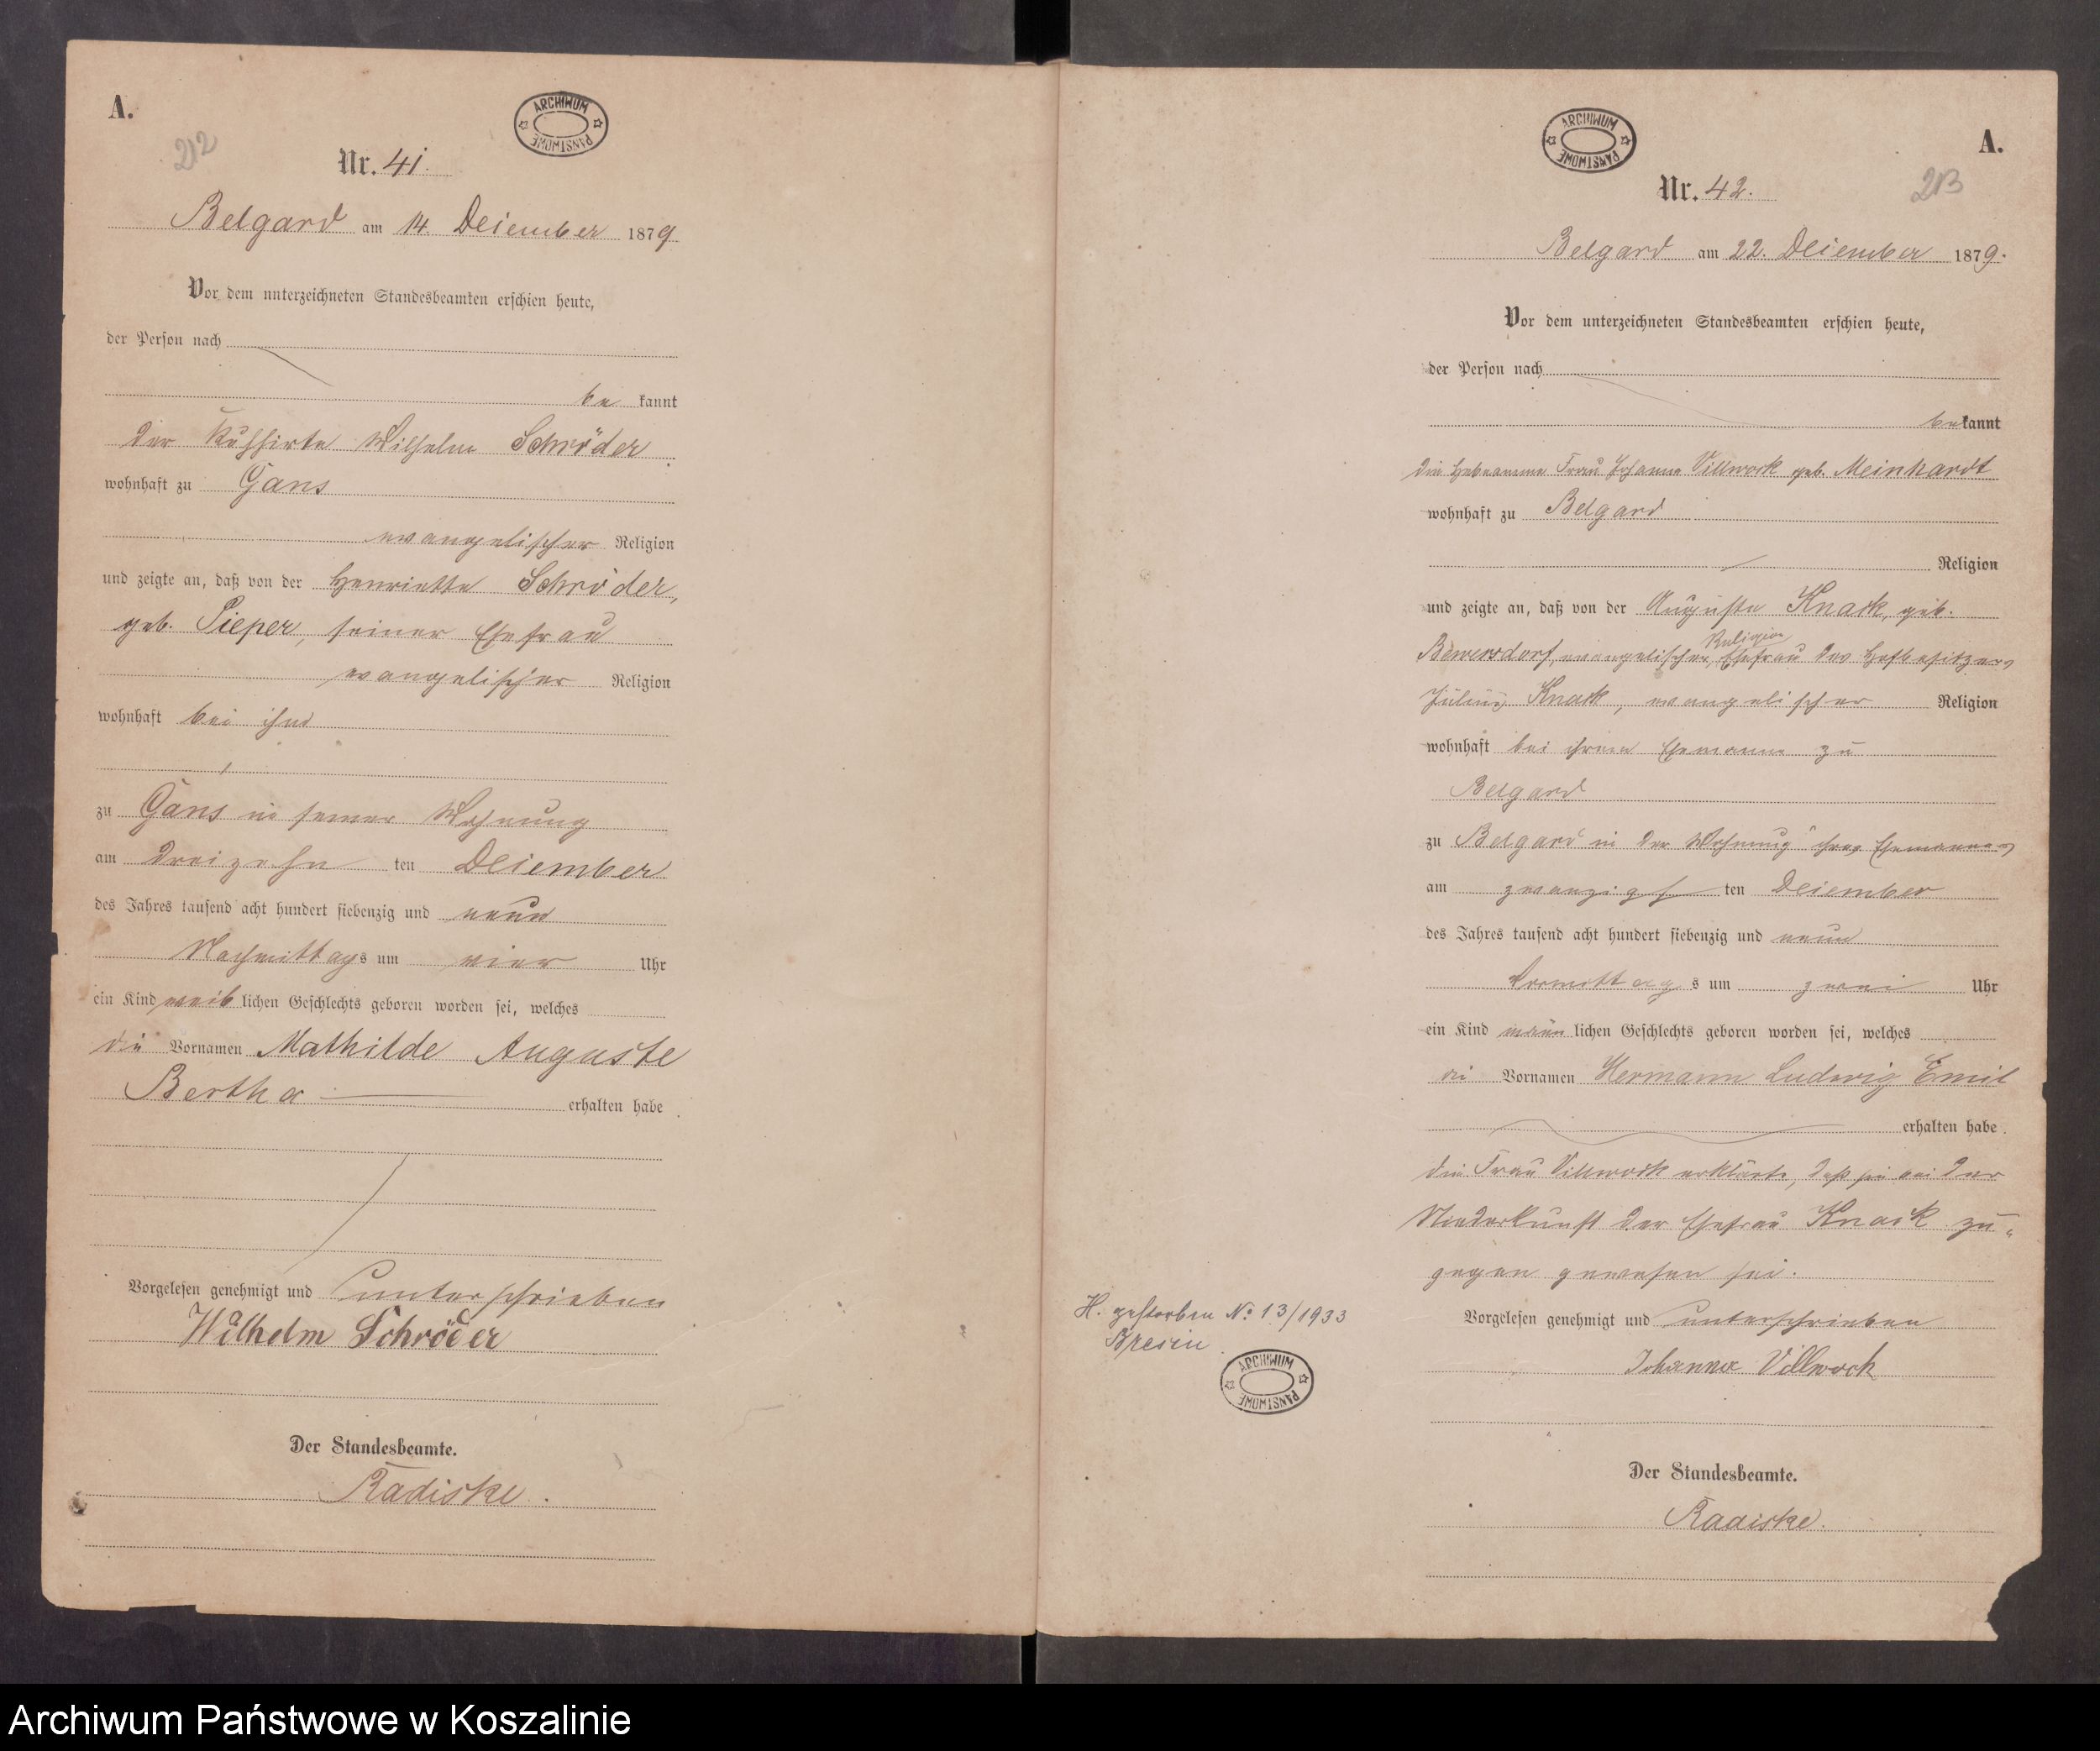 A.
212
ARCHIWUM PAŃSTWOWE
Nr. 41.
Belgard am 14. Dezember 1879.
Vor dem unterzeichneten Standesbeamten erschien heute,
der Person nach
be kannt
der Kuhhirte Wilhelm Schröder
wohnhaft zu Gans
evangelischer Religion
und zeigte an, daß von der Henriette Schröder,
geb. Pieper, seiner Ehefrau
evangelischer Religion
wohnhaft bei ihm
zu Gans in seiner Wohnung
am dreizehn ten Dezember
des Jahres tausend acht hundert siebenzig und neun
Nachmittags um vier Uhr
ein Kind weib lichen Geschlechts geboren worden sei, welches
die Vornamen Mathilde Auguste
Bertha erhalten habe
Vorgelesen genehmigt und unterschrieben
Wilhelm Schröder
Der Standesbeamte.
Radiske.
ARCHIWUM PAŃSTWOWE
A.
213
Nr. 42.
Belgard am 22. Dezember 1879.
Vor dem unterzeichneten Standesbeamten erschien heute,
der Person nach
bekannt
die Hebeamme Frau Johanna Villwock geb. Meinhardt
wohnhaft zu Belgard
Religion
und zeigte an, daß von der Auguste Knack, geb.
Religion
Bewersdorf, evangelischer, Ehefrau des Hofbesitzers
Julius Knack, evangelischer Religion
wohnhaft bei ihrem Ehemann zu
Belgard
zu Belgard in der Wohnung ihres Ehemannes
am zwanzigs ten Dezember
des Jahres tausend acht hundert siebenzig und neun
Vormittag s um zwei Uhr
ein Kind män lichen Geschlechts geboren worden sei, welches
die Vornamen Hermann Ludwig Emil
erhalten habe.
die Frau Villwock erklärte, daß sie bei der
Niederkunft der Ehefrau Knack zu-
gegen gewesen sei.
Vorgelesen genehmigt und unterschrieben
Johanna Villwock
Der Standesbeamte.
Radiske.
H. gestorben No. 13/1933
Bresin.
ARCHIWUM PAŃSTWOWE
Archiwum Państwowe w Koszalinie